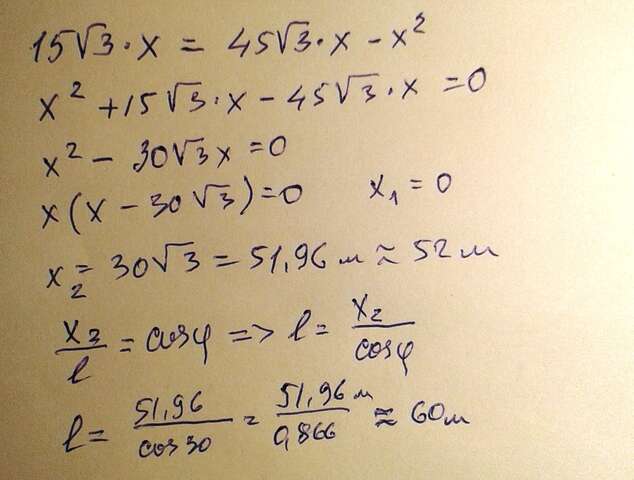 15√3·x = 45√3·x - x²
x² + 15√3·x - 45√3·x = 0
x² - 30√3x = 0
x(x - 30√3) = 0 x₁ = 0
x₂ = 30√3 = 51,96 m ≈ 52 m
x₂/l = cosφ => l = x₂/cosφ
l = 51,96/cos30 = 51,96 m/0,866 ≈ 60 m